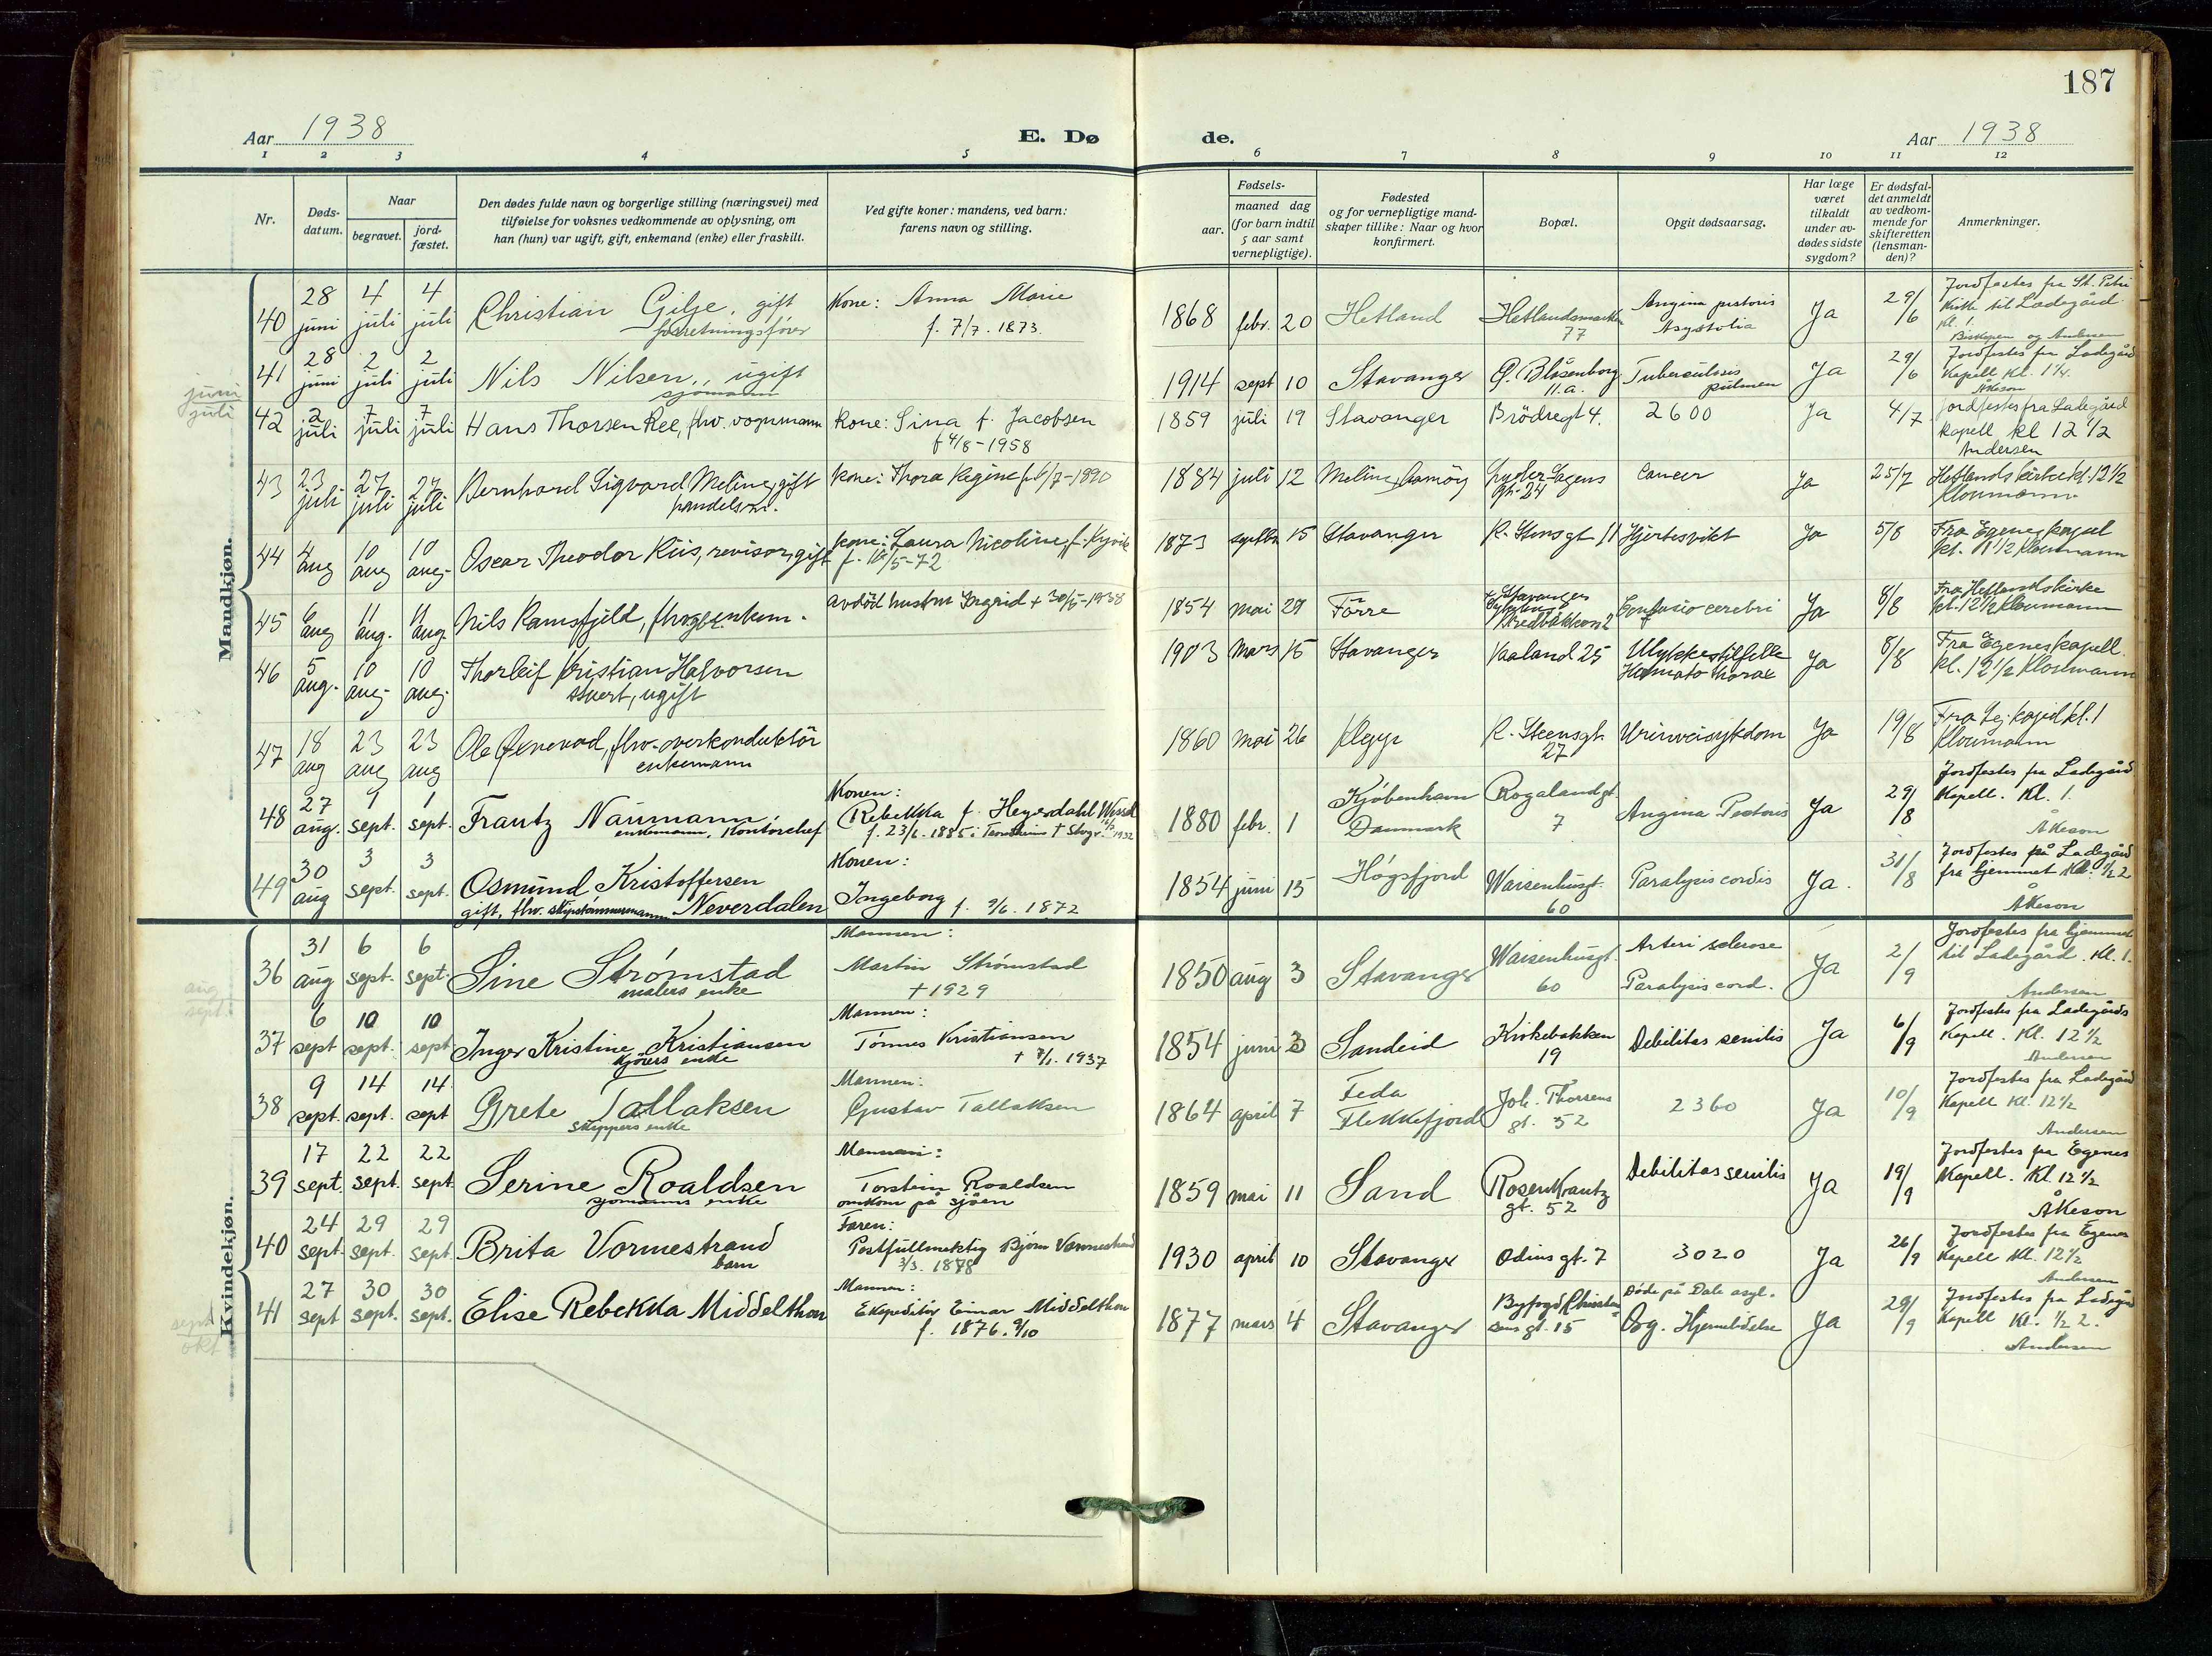 187
Aar 1938
E. Dø de.
Aar 1938
1 2 3 4 5 6 7 8 9 10 11 12
Nr.
Døds-
datum.
Naar
begravet.
jord-
fæstet.
Den dødes fulde navn og borgerlige stilling (næringsvei) med
tilføielse for voksnes vedkommende av oplysning, om
han (hun) var ugift, gift, enkemand (enke) eller fraskilt.
Ved gifte koner: mandens, ved barn:
farens navn og stilling.
Fødsels-
aar.
maaned dag
(for barn indtil
5 aar samt
vernepligtige).
Fødested
og for vernepligtige mand-
skaper tillike: Naar og hvor
konfirmert.
Bopæl.
Opgit dødsaarsag.
Har læge
været
tilkaldt
under av-
dødes sidste
sygdom?
Er dødsfal-
det anmeldt
av vedkom-
mende for
skifteretten
(lensman-
den)?
Anmerkninger.
Mandkjøn.
juni
juli
40 28 juni 4 juli 4 juli Christian Gilje, gift
forretningsfører
Kone: Anna Marie
f. 7/7. 1873.
1868 febr. 20 Hetland Hetlandsmarken
77
Angina pectoris
Asystolia
Ja 29/6
Jordfestes fra St. Petri
Kirke til Ladegård
Kl. 1.
Biskopen og Andersen
41 28 juni 2 juli 2 juli Nils Nilsen, ugift
sjømann
1914 sept 10 Stavanger Ø. Blåsenborg
11.a.
Tuberculosis
pulmon
Ja 29/6
Jordfestes fra Ladegård
Kapell Kl. 1 1/4.
Åkeson
42 2 juli 7 juli 7 juli Hans Thorsen Ree, fhv. vognmann
Kone: Sina f. Jacobsen
f 4/8-1958
1859 juli 19 Stavanger Brødregt 4. 2600 Ja 4/7
Jordfestes fra Ladegård
kapell kl 12 1/2
Andersen
43 23 juli 27 juli 27 juli Bernhard Sigvard Meling, gift
handelsm.
Kone: Thora Regine f. 6/7-1890
1884 juli 12 Meling, Åmøy Lyder Sagens
gt. 24
Cancer Ja 25/7
Hetlandskirke kl. 12 1/2
Kloumann.
44 4 aug 10 aug 10 aug. Oscar Theodor Riis, revisor, gift
Kone: Laura Nicoline, f. Kyvik
1873 septbr 15 Stavanger R. Steensgt 11 Hjertesvikt Ja 5/8
Fra Egenes kapel
kl. 11 1/2 Kloumann
45 6 aug 11 aug. 11 aug. Nils Ramsfjeld,
avdød hustru Ingrid + 30/5-1938
1854 mai 29 Førre Confusio cerebri Ja 8/8
Fra Hetlandskirke
kl. 12 1/2 Kloumann
46 5 aug. 10 aug. 10 aug. Thorleif Kristian Halvorsen
stuert, ugift
1903 Mars 15 Stavanger Vaaland 25 Ulykkestilfelle
Hæmato thorax
Ja 8/8
Fra Egeneskapell.
kl. 12 1/2 Kloumann
47 18 aug 23 aug 23 aug Ole Øenevad, fhv. overkonduktør
enkemann
1860 Mai 26 Klepp R. Steensgt.
27
Urinveisykdom Ja 19/8
kl. 1
Kloumann
48 27 aug. 1 sept. 1 sept. Frantz Naumann,
enkemann, Kontorchef
Konen:
Rebekka f. Heyerdahl
1880 febr. 1 Kjøbenhavn
Danmark
Rogalandgt.
7
Angina Pectoris Ja 29/8
Jordfestes fra Ladegård
Kapell. Kl. 1.
Åkeson
49 30 aug 3 sept. 3 sept. Osmund Kristoffersen
gift, fhv. skipstømmermann Neverdalen
Konen:
Ingeborg f. 9/6. 1872
1854 juni 15 Høgsfjord Waisenhusgt.
60
Paralysis cordis Ja. 31/8
Jordfestes på Ladegård
fra hjemmet Kl. 1/2 2
Åkeson
Kvindekjøn.
aug
sept.
36 31 aug 6 sept. 6 sept. Sine Strømstad
malers enke
Mannen:
Martin Strømstad
+ 1929
1850 aug 3 Stavanger Waisenhusgt.
60
Arteri sclerose
Paralysis cord.
Ja 2/9
Jordfestes fra hjemmet
til Ladegård. Kl. 1.
Andersen
37 6 sept 10 sept. 10 sept Inger Kristine Kristiansen
kjørers enke
Mannen:
Tønnes Kristiansen
1854 juni 3 Sandeid Kirkebakken
19
Debilitas senilis Ja 6/9
Jordfestes fra Ladegårds
Kapell. Kl. 12 1/2
Andersen
38 9 sept. 14 sept. 14 sept Grete Tallaksen
skippers enke
Mannen:
Gustav Tallaksen
1864 april 7 Feda
Flekkefjord
Joh. Thorsens
gt. 52
2360 Ja 10/9
Jordfestes fra Ladegård
Kapell Kl. 12 1/2
Andersen
39 17 sept. 22 sept. 22 sept. Serine Roaldsen
sjømanns enke
Mannen:
Torstein Roaldsen
omkom på sjøen
1859 mai 11 Sand Rosenkrantz
gt. 52
Debilitas senilis Ja 19/9
Jordfestes fra Egenes
Kapell. Kl 12 1/2
Åkeson
40 24 sept. 29 sept. 29 sept. Brita Vormestrand
barn
Faren:
Postfullmektig Bjørn Vormestrand
1930 april 10 Stavanger Odins gt. 7 3020 Ja 26/9
Jordfestes fra Egenes
Kapell Kl. 12 1/2
Andersen
sept
okt
41 27 sept 30 sept. 30 sept. Elise Rebekka Middelthon
Mannen:
Ekspeditør Einar Middelthon
f. 1876. 9/10
1877 mars 4 Stavanger
gt. 15
Døde på Dale asyl.
Org. Hjernelidelse
Ja 29/9
Jordfestes fra Ladegård
Kapell Kl. 1/2 2.
Andersen